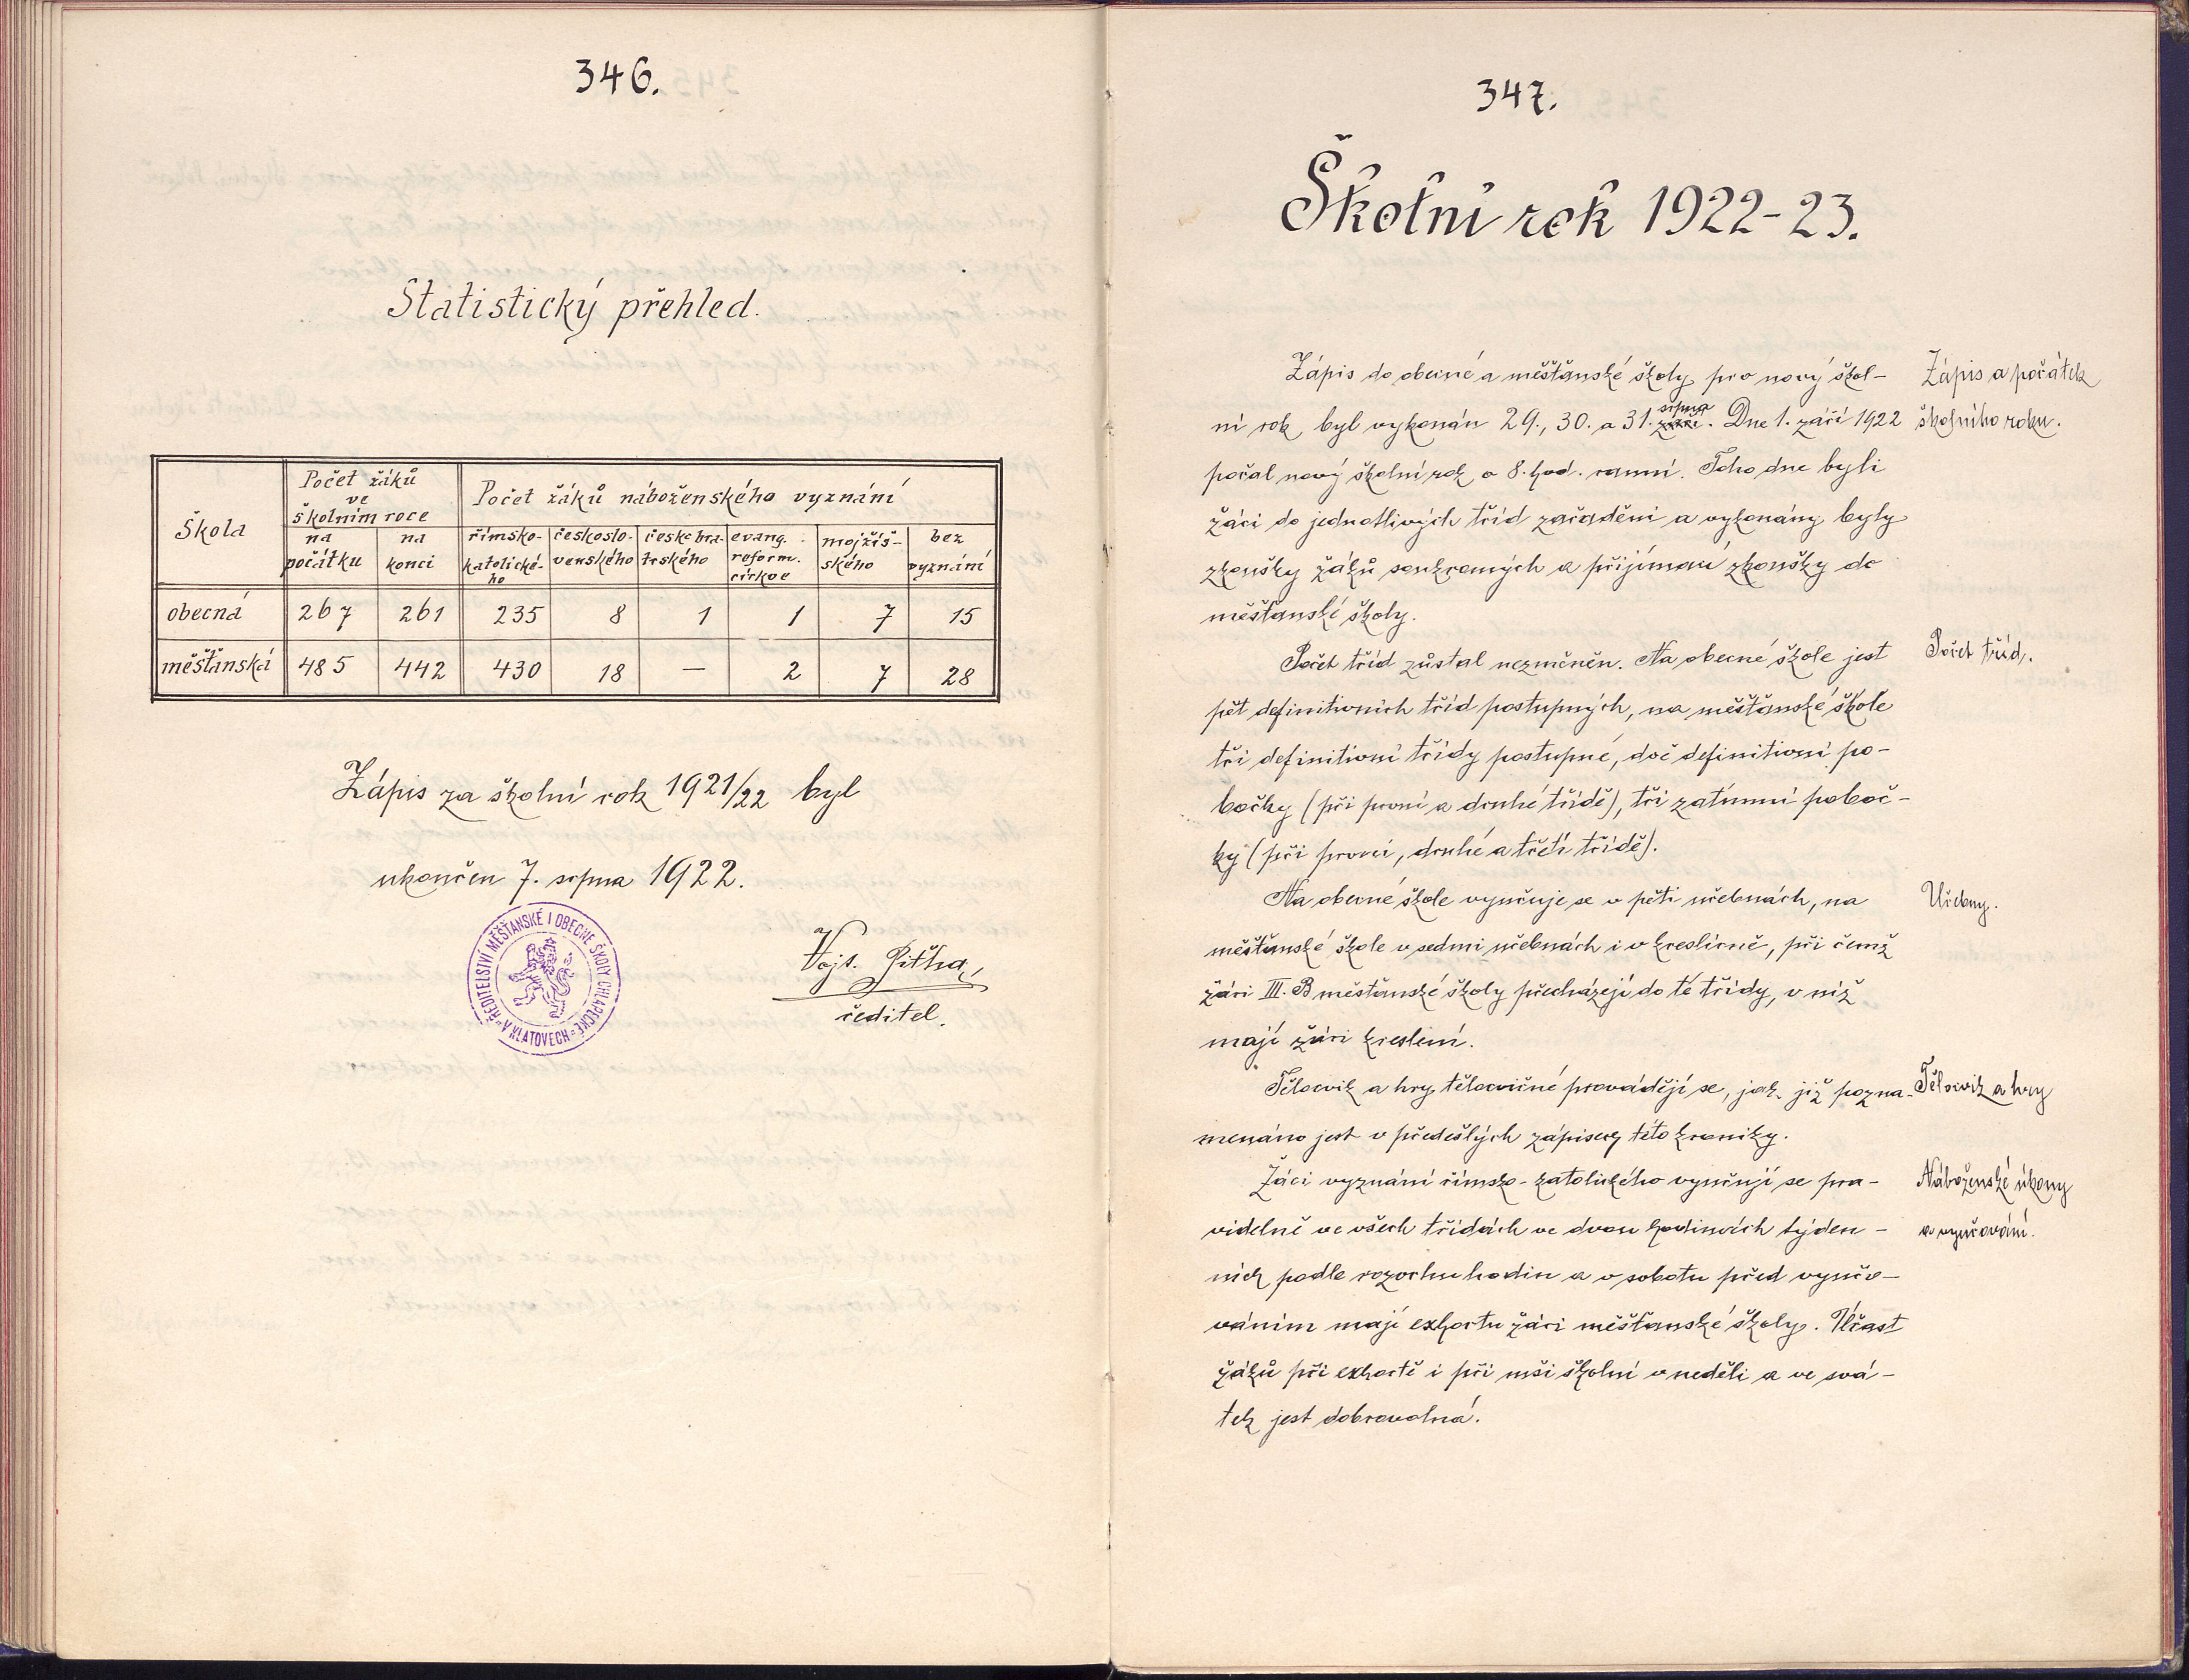 346.
Statistický přehled.
Škola
Počet žáků
ve
školním roce
Počet žáků náboženského vyznání
na
počátku
na
konci
římsko-
katolické-
ho
českoslo-
venského
českobra-
trského
evang.
reform.
církve
mojžíš-
ského
bez
vyznání
obecná 267 261 235 8 1 1 7 15
měšťanská 485 442 430 18 — 2 7 28
Zápis za školní rok 1921/22 byl
ukončen 7. srpna 1922.
ŘEDITELSTVÍ MĚŠŤANSKÉ I OBECNÉ ŠKOLY CHLAPECKÉ V KLATOVECH
Vojt. Pitha,
ředitel.
347.
Školní rok 1922-23.
Zápis do obecné a měšťanské školy pro nový škol-
Zápis a počátek
srpna
ní rok byl vykonán 29., 30. a 31. září. Dne 1. září 1922
školního roku.
počal nový školní rok o 8. hod. ranní. Toho dne byli
žáci do jednotlivých tříd zařaděni a vykonány byly
zkoušky žáků soukromých a přijímací zkoušky do
měšťanské školy.
Počet tříd zůstal nezměněn. Na obecné škole jest
Počet tříd.
pět definitivních tříd postupných, na měšťanské škole
tři definitivní třídy postupné, dvě definitivní po-
bočky (při první a druhé třídě), tři zatímní poboč-
ky (při první, druhé a třetí třídě).
Na obecné škole vyučuje se v pěti učebnách, na
Učebny.
měšťanské škole v sedmi učebnách i v kreslírně, při čemž
žáci III. B měšťanské školy přecházejí do té třídy, v níž
mají žáci kreslení.
Tělocvik a hry tělocvičné provádějí se, jak již pozna-
Tělocvik a hry
menáno jest v předešlých zápisech této kroniky.
Žáci vyznání římsko-katolického vyučují se pra-
Náboženské úkony
videlně ve všech třídách ve dvou hodinách týden-
a vyučování.
ních podle rozvrhu hodin a v sobotu před vyučo-
váním mají exhortu žáci měšťanské školy. Účast
žáků při exhortě i při mši školní v neděli a ve svá-
tek jest dobrovolná.